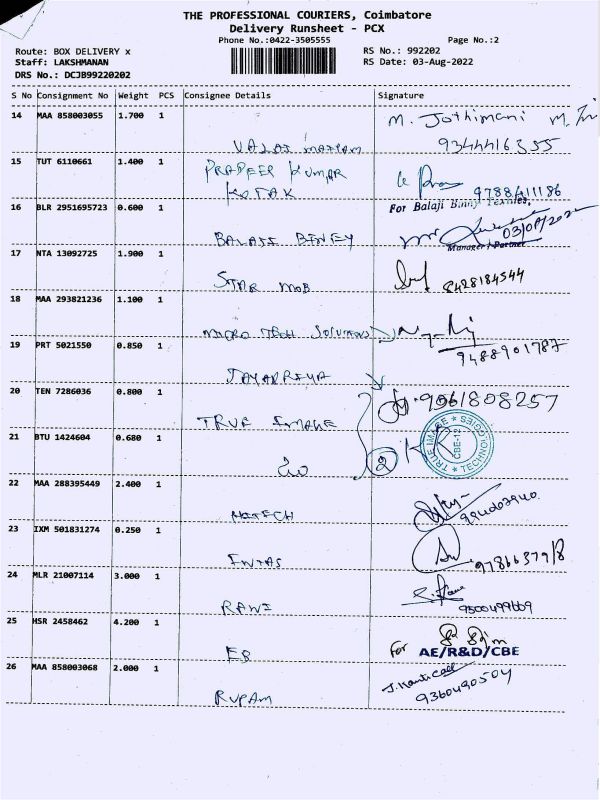 THE PROFESSIONAL COURIERS, Coimbatore
Delivery Runsheet - PCX
Phone No.:0422-3505555 Page No.:2
Route: BOX DELIVERY x RS No.: 992202
Staff: LAKSHMANAN RS Date: 03-Aug-2022
DRS No.: DCJB99220202
S No Consignment No Weight PCS Consignee Details Signature
14 MAA 858003055 1.700 1 M. Jothimani
9344416355
15 TUT 6110661 1.400 1 PRADEEP KUMAR
KOTAK
9788411186
For Balaji Binny Textiles,
16 BLR 2951695723 0.600 1 03/08/2022
BALAJI BINEY Manager / Partner
17 NTA 13092725 1.900 1
STAR MOB 8428184544
18 MAA 293821236 1.100 1
MICRO TECH SOLUTIONS
19 PRT 5021550 0.850 1 9488901787
JAYAPRIYA
20 TEN 7286036 0.800 1 9061808257
TRUE IMAGE
TRUE IMAGE TECHNOLOGIES CBE-12
21 BTU 1424604 0.680 1
2
22 MAA 288395449 2.400 1
HITECH
23 IXM 501831274 0.250 1
INTAS
24 MLR 21007114 3.000 1
RAWI 9500499669
25 HSR 2458462 4.200 1
EB For AE/R&D/CBE
26 MAA 858003068 2.000 1
RUPAM 9360490504